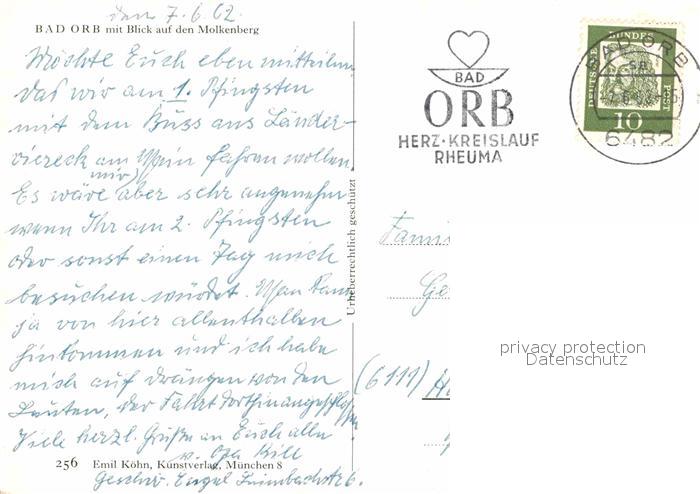 den 7.6.62.
BAD ORB mit Blick auf den Molkenberg
Möchte Euch eben mitteilen
daß wir am 1. Pfingsten
mit dem Buss ans Länder-
viereck am Main fahren wollen.
Es wäre mir aber sehr angenehm
wenn Ihr am 2. Pfingsten
oder sonst einen Tag mich
besuchen würdet. Man kann
ja von hier allenthalben
hinkommen und ich habe
mich auf drängen von den
Leuten, der Fahrt dorthin angeschlossen
Viele herzl. Grüße an Euch alle
v. Opa
256 Emil Köhn, Kunstverlag, München 8
Geschw. Engel
Urheberrechtlich geschützt
BAD
ORB
HERZ·KREISLAUF
RHEUMA
BAD ORB
6482
DEUTSCHE BUNDES POST
10
Fami
Ge
(6111)
privacy protection
Datenschutz